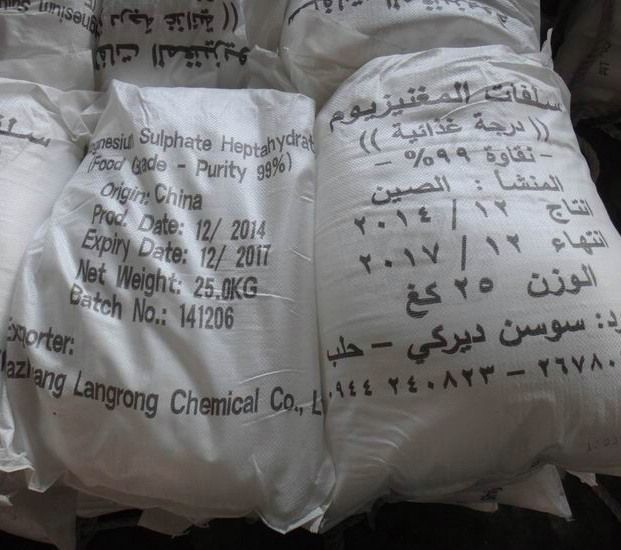 Sulphate Heptahydrat
(Food Grade - Purity 99%)
Origin: China
Prod. Date: 12/ 2014
Expiry Date: 12/ 2017
Net Weight: 25.0KG
Batch No.: 141206
Exporter:
Langrong Chemical Co., L
سلفات المغنيزيوم
(( درجة غذائية ))
- نقاوة ٩٩% -
المنشأ : الصين
انتاج ١٢ / ٢٠١٤
انتهاء ١٢ / ٢٠١٧
الوزن ٢٥ كغ
رد: سوسن ديركي - حلب
٠٩٤٤ ٢٤٠٨٢٣ - ٢٦٧٨٠